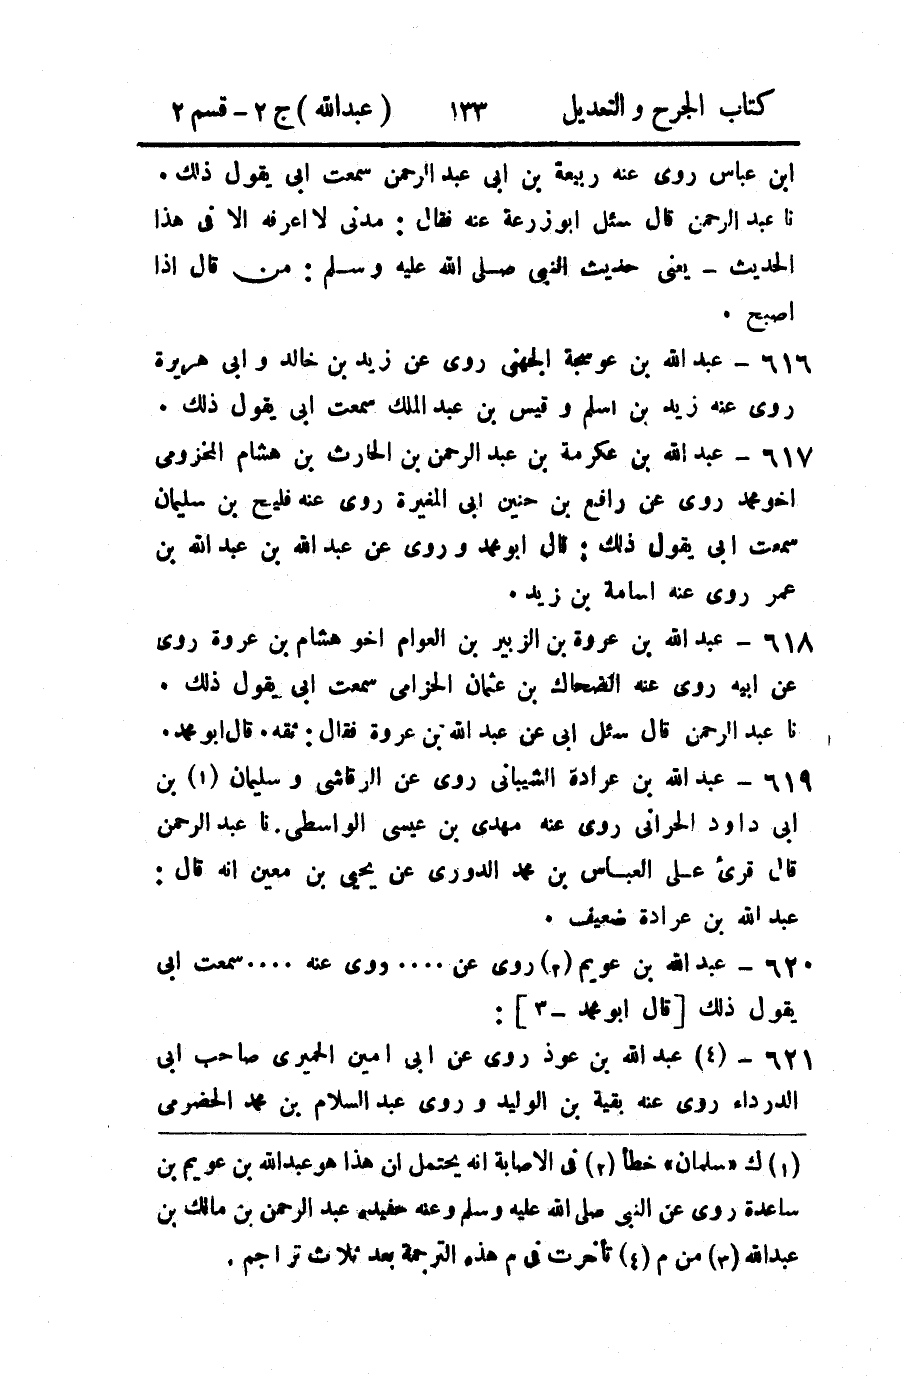 كتاب الجرح و التعديل ١٣٣ ( عبدالله ) ج ٢ - قسم ٢
ابن عباس روى عنه ربيعة بن ابى عبد الرحمن سمعت ابى يقول ذلك .
نا عبد الرحمن قال سئل ابو زرعة عنه فقال : مدنى لا اعرفه الا فى هذا
الحديث - يعنى حديث النبى صلى الله عليه وسلم : من قال اذا
اصبح .
٦١٦ - عبد الله بن عوسجة الجهنى روى عن زيد بن خالد و ابى هريرة
روى عنه زيد بن اسلم و قيس بن عبد الملك سمعت ابى يقول ذلك .
٦١٧ - عبد الله بن عكرمة بن عبد الرحمن بن الحارث بن هشام المخزومى
اخو محمد روى عن رافع بن حنين ابى المغيرة روى عنه فليح بن سليمان
سمعت ابى يقول ذلك : قال ابو محمد و روى عن عبد الله بن عبد الله بن
عمر روى عنه اسامة بن زيد .
٦١٨ - عبد الله بن عروة بن الزبير بن العوام اخو هشام بن عروة روى
عن ابيه روى عنه الضحاك بن عثمان الحزامى سمعت ابى يقول ذلك .
نا عبد الرحمن قال سئل ابى عن عبد الله بن عروة فقال : ثقه . قال ابو محمد .
٦١٩ - عبد الله بن عرادة الشيبانى روى عن الرقاشى و سليمان (١) بن
ابى داود الحرانى روى عنه مهدى بن عيسى الواسطى . نا عبد الرحمن
قال قرئ على العباس بن محمد الدورى عن يحيى بن معين انه قال :
عبد الله بن عرادة ضعيف .
٦٢٠ - عبد الله بن عويم (٢) روى عن .... ووى عنه .... سمعت ابى
يقول ذلك [قال ابو محمد - ٣] :
٦٢١ - (٤) عبد الله بن عوذ روى عن ابى امين الحميرى صاحب ابى
الدرداء روى عنه بقية بن الوليد و روى عبد السلام بن محمد الحضرمى
(١) ك «سلمان» خطأ (٢) فى الاصابة انه يحتمل ان هذا هو عبدالله بن عويم بن
ساعدة روى عن النبى صلى الله عليه وسلم وعنه حفيده عبد الرحمن بن مالك بن
عبدالله (٣) من م (٤) تأخرت فى م هذه الترجمة بعد ثلاث تراجم .